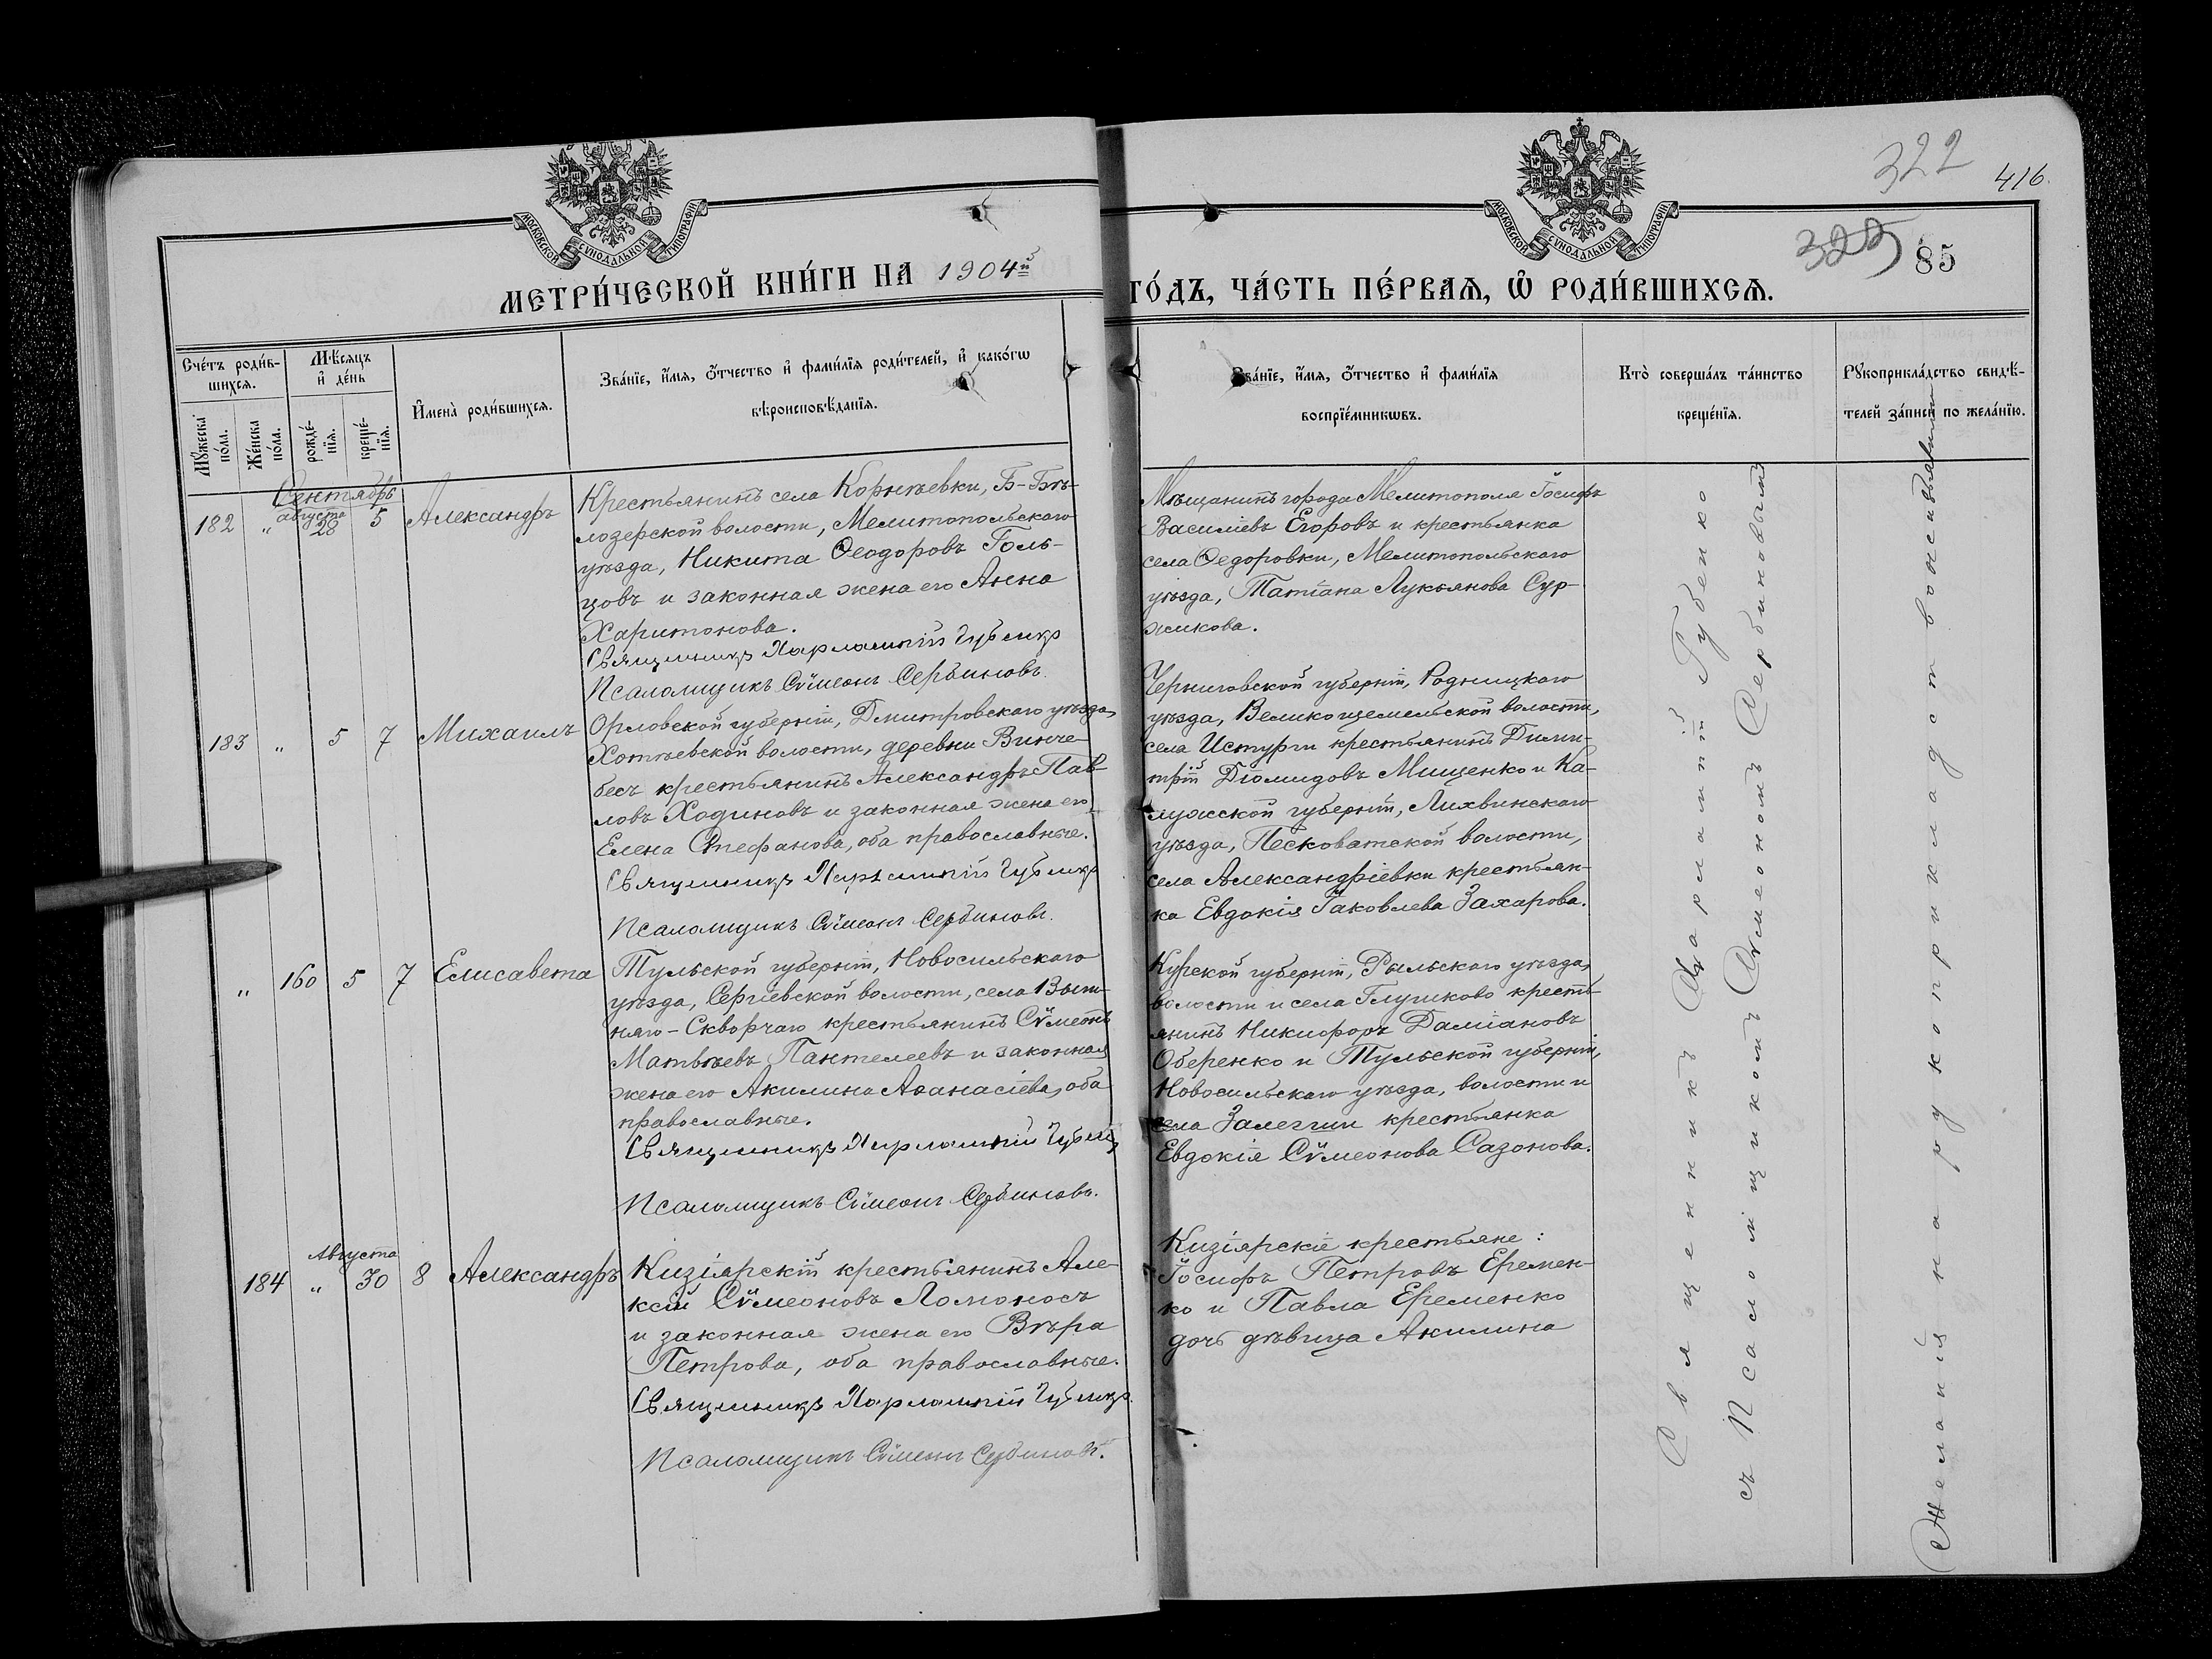 МОСКОВСКОЙ СѴНОДАЛЬНОЙ ТИПОГРАФІИ
МОСКОВСКОЙ СѴНОДАЛЬНОЙ ТИПОГРАФІИ
322
416.
325
85
МЕТРИ́ЧЕСКОЙ КНИ́ГИ НА 1904й
ГО́ДЪ, ЧА́СТЬ ПЕ́РВАЯ, Ѡ РОДИ́ВШИХСЯ.
Сче́тъ роди́в-
шихся.
Мѣ́сяцъ
и де́нь
Мꙋ́жеска по́ла.
Же́нска по́ла.
рожде́-
нїя.
креще́-
нїя.
Имена̀ роди́вшихся.
Зва́нїе, и́мя, о́тчество и фами́лїя роди́телей, и како́гѡ
вѣроисповѣ́данїя.
Зва́нїе, и́мя, о́тчество и фами́лїя
воспрїе́мникѡвъ.
Кто̀ соверша́лъ та́инство
креще́нїя.
Рꙋкоприкла́дство свидѣ́-
телей за́писи по жела́нїю.
Сентябрь
182 " августа 28 5 Александръ
Крестьянинъ села Корнѣевки, Б-Бѣ-
лозерской волости, Мелитопольскаго
уѣзда, Никита Ѳеодоровъ Голь-
цовъ и законная жена его Анна
Харитонова.
Священникъ Харлампій Губенко
Псаломщикъ Сѵмеонъ Сербиновъ.
Мѣщанинъ города Мелитополя Іосифъ
Василіевъ Егоровъ и крестьянка
села Ѳедоровки, Мелитопольскаго
уѣзда, Татіана Лукьянова Сур-
жикова.
183 " 5 7 Михаилъ
Орловской губерніи, Дмитровскаго уѣзда,
Хотѣевской волости, деревни
крестьянинъ Александръ Пав-
ловъ Ходиновъ и законная жена его
Елена Стефанова, оба православные.
Священникъ Харлампій Губенко
Псаломщикъ Сѵмеонъ Сербиновъ.
Черниговской губерніи, Родницкаго
уѣзда, волости,
села Истурги крестьянинъ Дими-
трій Діомидовъ Мищенко и Ка-
лужской губерніи, Лихвинскаго
уѣзда, Песковатской волости,
села Александріевки крестьян-
ка Евдокія Іаковлева Захарова.
" 160 5 7 Елисавета
Тульской губерніи, Новосильскаго
уѣзда, Сергіевской волости, села Выш-
няго-Скворчаго крестьянинъ Сѵмеонъ
Матвѣевъ Пантелеевъ и законная
жена его Акилина Аѳанасіева, оба
православные.
Священникъ Харлампій Губенко
Псаломщикъ Сѵмеонъ Сербиновъ.
Курской губерніи, Рыльскаго уѣзда,
волости и села Глушково кресть-
янинъ Никифоръ Даміановъ
Оберенко и Тульской губерніи,
Новосильскаго уѣзда, волости и
села Залегщи крестьянка
Евдокія Сѵмеонова Сазонова.
184 " Августа 30 8 Александръ
Кизіярскій крестьянинъ Але-
ксій Сѵмеоновъ Ломоносъ
и законная жена его Вѣра
Петрова, оба православные.
Священникъ Харлампій Губенко
Псаломщикъ Сѵмеонъ Сербиновъ.
Кизіярскіе крестьяне:
Іосифъ Петровъ Еремен-
ко и Павла Еременко
дочь дѣвица Акилина
Священникъ Харлампій Губенко
съ Псаломщикомъ Сѵмеономъ Сербиновымъ